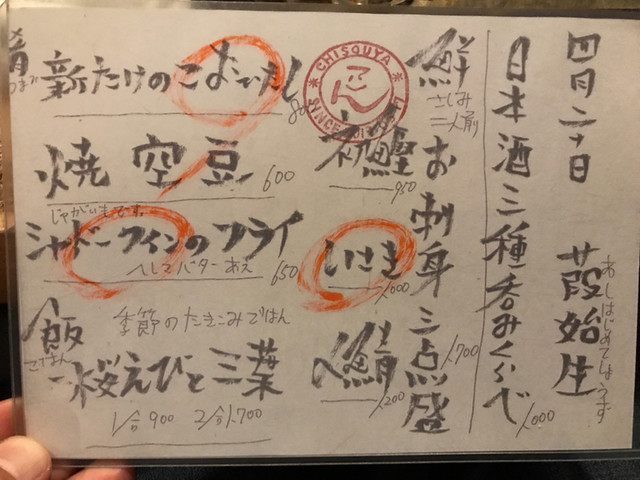 四月二十日 葭始生
あしはじめてしょうず
日本酒三種呑みくらべ 1,000
鮮
さしみ
二人前
お刺身三点盛 1,700
初鰹 950
いさき 1,000
〆鯖 1,200
CHISOUYA
SINCE
肴
つまみ
新たけのこよごしたし
焼空豆 600
じゃがいもです
シャドークィンのフライ
へしこバターあえ 650
飯
ごはん
季節のたきこみごはん
桜えびと三葉
1合900 2合1,700